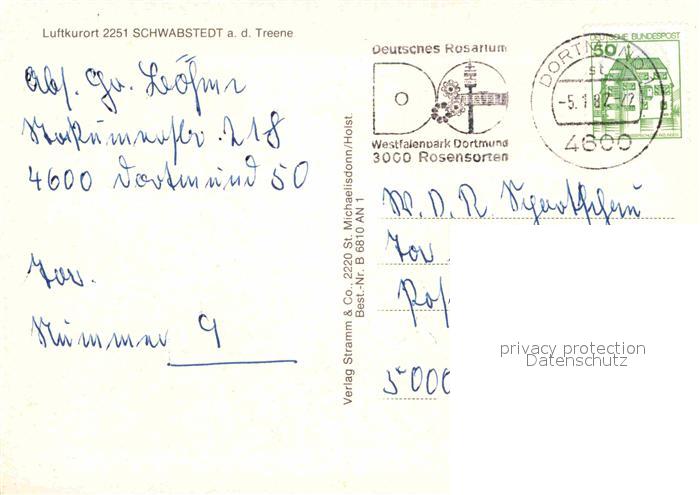 Luftkurort 2251 SCHWABSTEDT a. d. Treene
Abs. Gv. Böhmer
218
4600 Dortmund 50
Tor.
Nummer 9
Verlag Stramm & Co., 2220 St. Michaelisdonn/Holst.
Best.-Nr. B 6810 AN 1
Deutsches Rosarium
DO
Westfalenpark Dortmund
3000 Rosensorten
DORTMUND
-5.1.82-22
4600
DEUTSCHE BUNDESPOST
50
W. D. R.
Tor
5000
privacy protection
Datenschutz